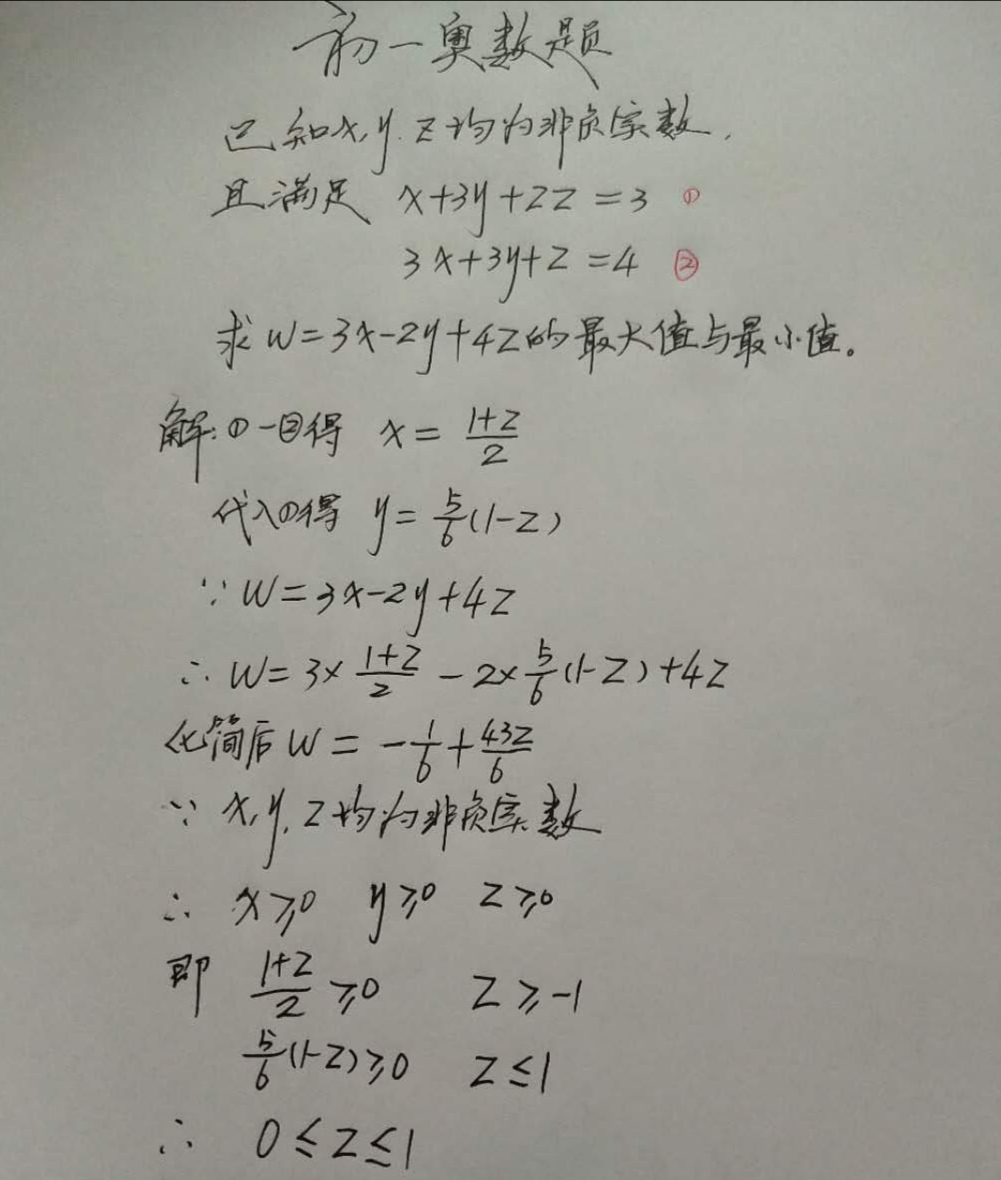 初一奥数题
已知x,y.z均为非负实数,
且满足 x+3y+2z=3 ①
3x+3y+z=4 ②
求w=3x-2y+4z的最大值与最小值。
解:①-②得 x=\frac{1+z}{2}
代入①得 y=\frac{5}{6}(1-z)
∵w=3x-2y+4z
∴w=3×\frac{1+z}{2}-2×\frac{5}{6}(1-z)+4z
化简后w=-\frac{1}{6}+\frac{43z}{6}
∵x,y,z均为非负实数
∴ x≥0 y≥0 z≥0
即 \frac{1+z}{2}≥0 z≥-1
\frac{5}{6}(1-z)≥0 z≤1
∴ 0≤z≤1